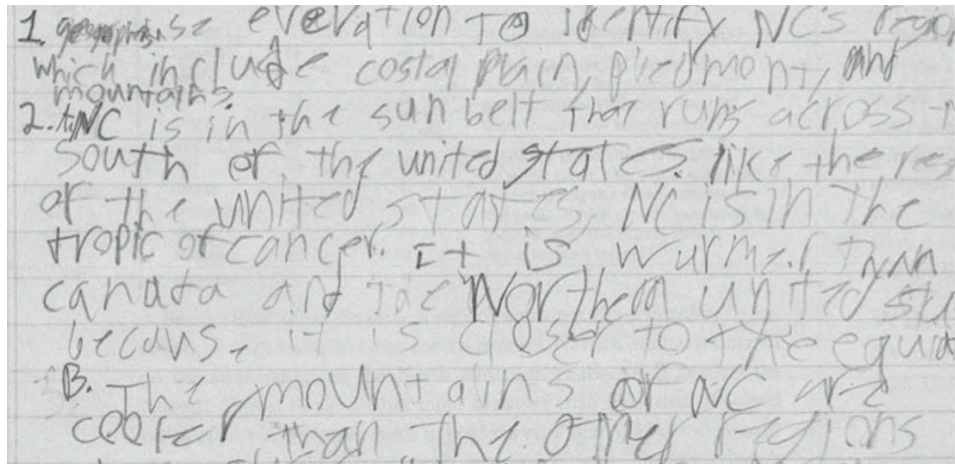 1. use elevation to identify NC's
which include costal plain, piedmont, and
mountains.
2. NC is in the sun belt that runs across
south of the united states. like the
of the united states, NC is in the
tropic of cancer. It is wurmer than
canada and the Northern united
because it is closer to the
B. The mountains of NC are
cooler than the other regions